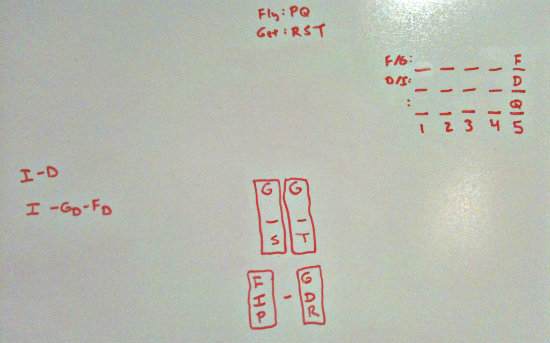 Fly: PQ
Get: RST
F/G: _ _ _ _ F
D/I: _ _ _ _ D
: _ _ _ _ Q
1 2 3 4 5
I - D
I - GD - FD
G G
_ _
S T
F G
I - D
P R